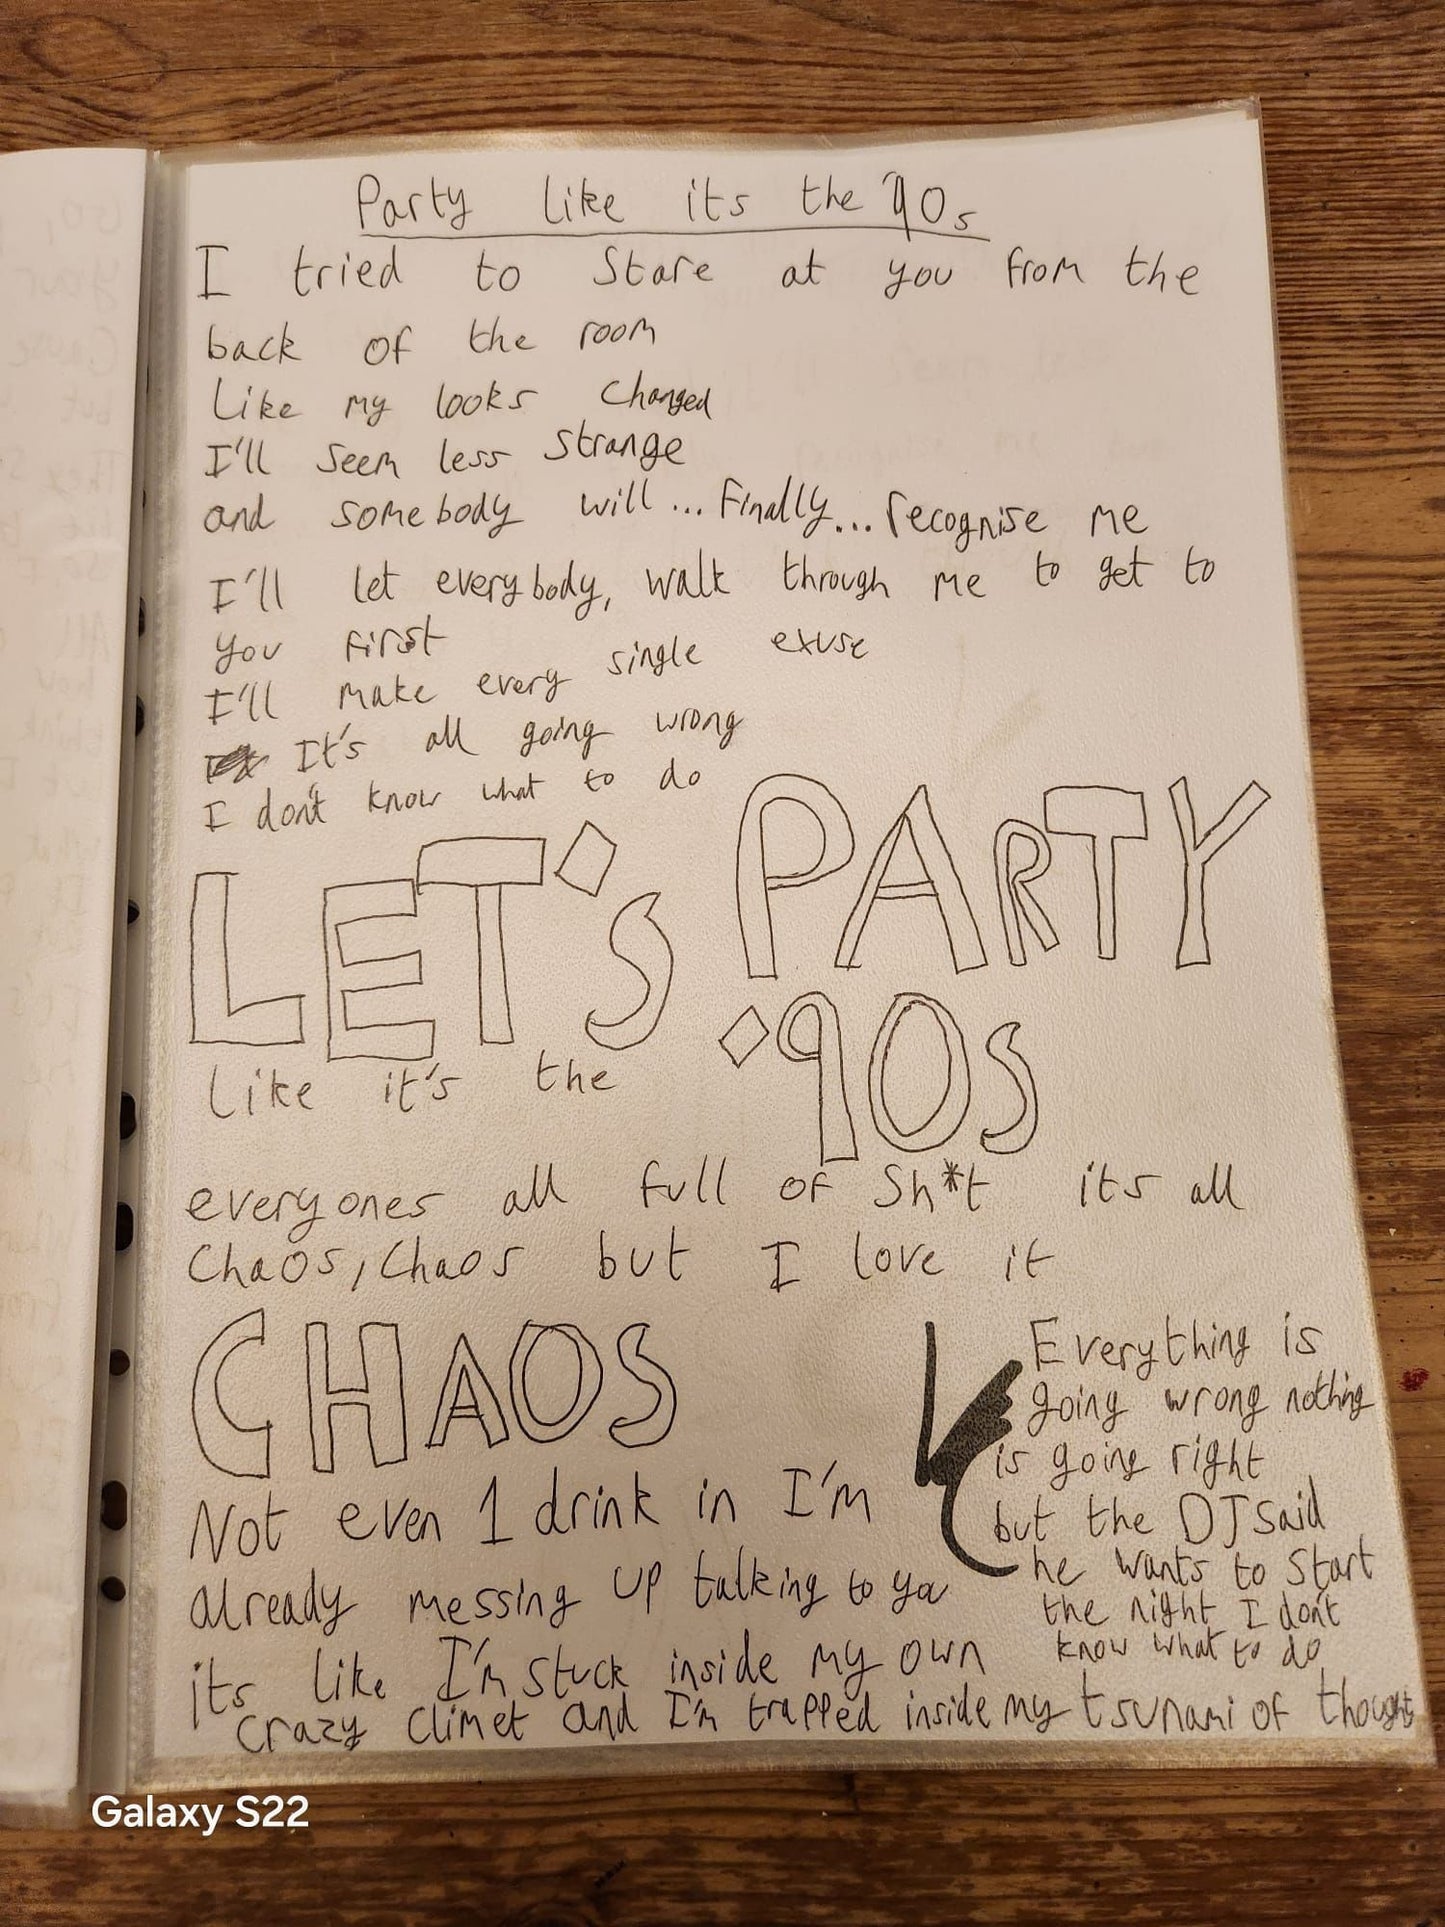 Party like its the '90s
I tried to stare at you from the
back of the room
Like my looks changed
I'll seem less strange
and somebody will... finally... recognise me
I'll let everybody, walk through me to get to
you first
I'll make every single exuse
It's all going wrong
I don't know what to do
LET'S PARTY
like it's the '90s
everyones all full of Sh*t its all
Chaos, Chaos but I love it
CHAOS
Everything is
going wrong nothing
is going right
but the DJ said
he wants to start
the night I don't
know what to do
Not even 1 drink in I'm
already messing up talking to you
its like I'm stuck inside my own
crazy climet and I'm trapped inside my tsunami of thoughts
Galaxy S22